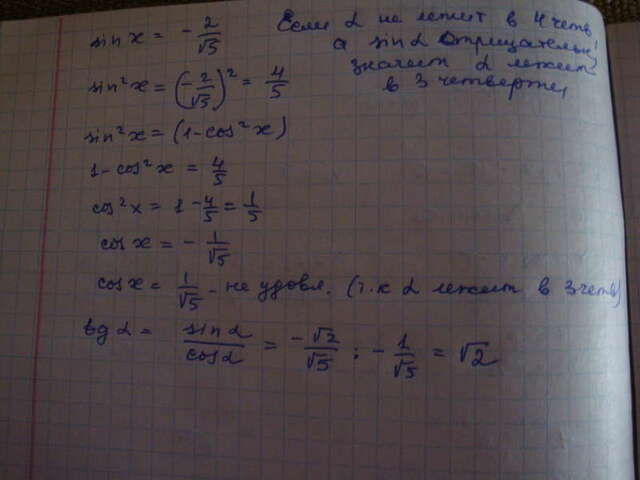 sin x = - 2/√5
Если α не лежит в 4 четв,
а sin α отрицательн,
значит α лежит
в 3 четверти
sin²x = (-2/√5)² = 4/5
sin²x = (1-cos²x)
1-cos²x = 4/5
cos²x = 1 - 4/5 = 1/5
cos x = - 1/√5
cos x = 1/√5 - не удовл. (т.к α лежит в 3 четв)
tg α = sin α/cos α = -√2/√5 : - 1/√5 = √2